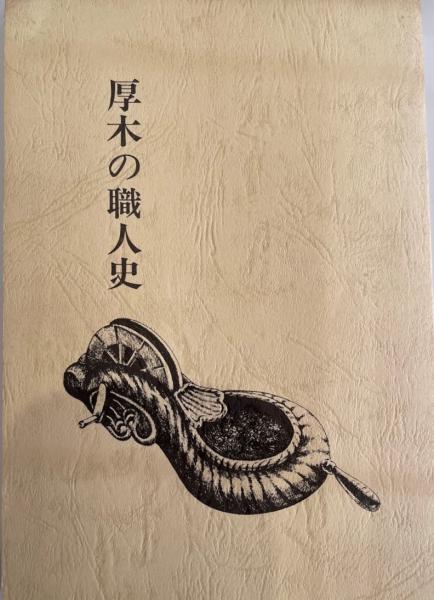 厚木の職人史